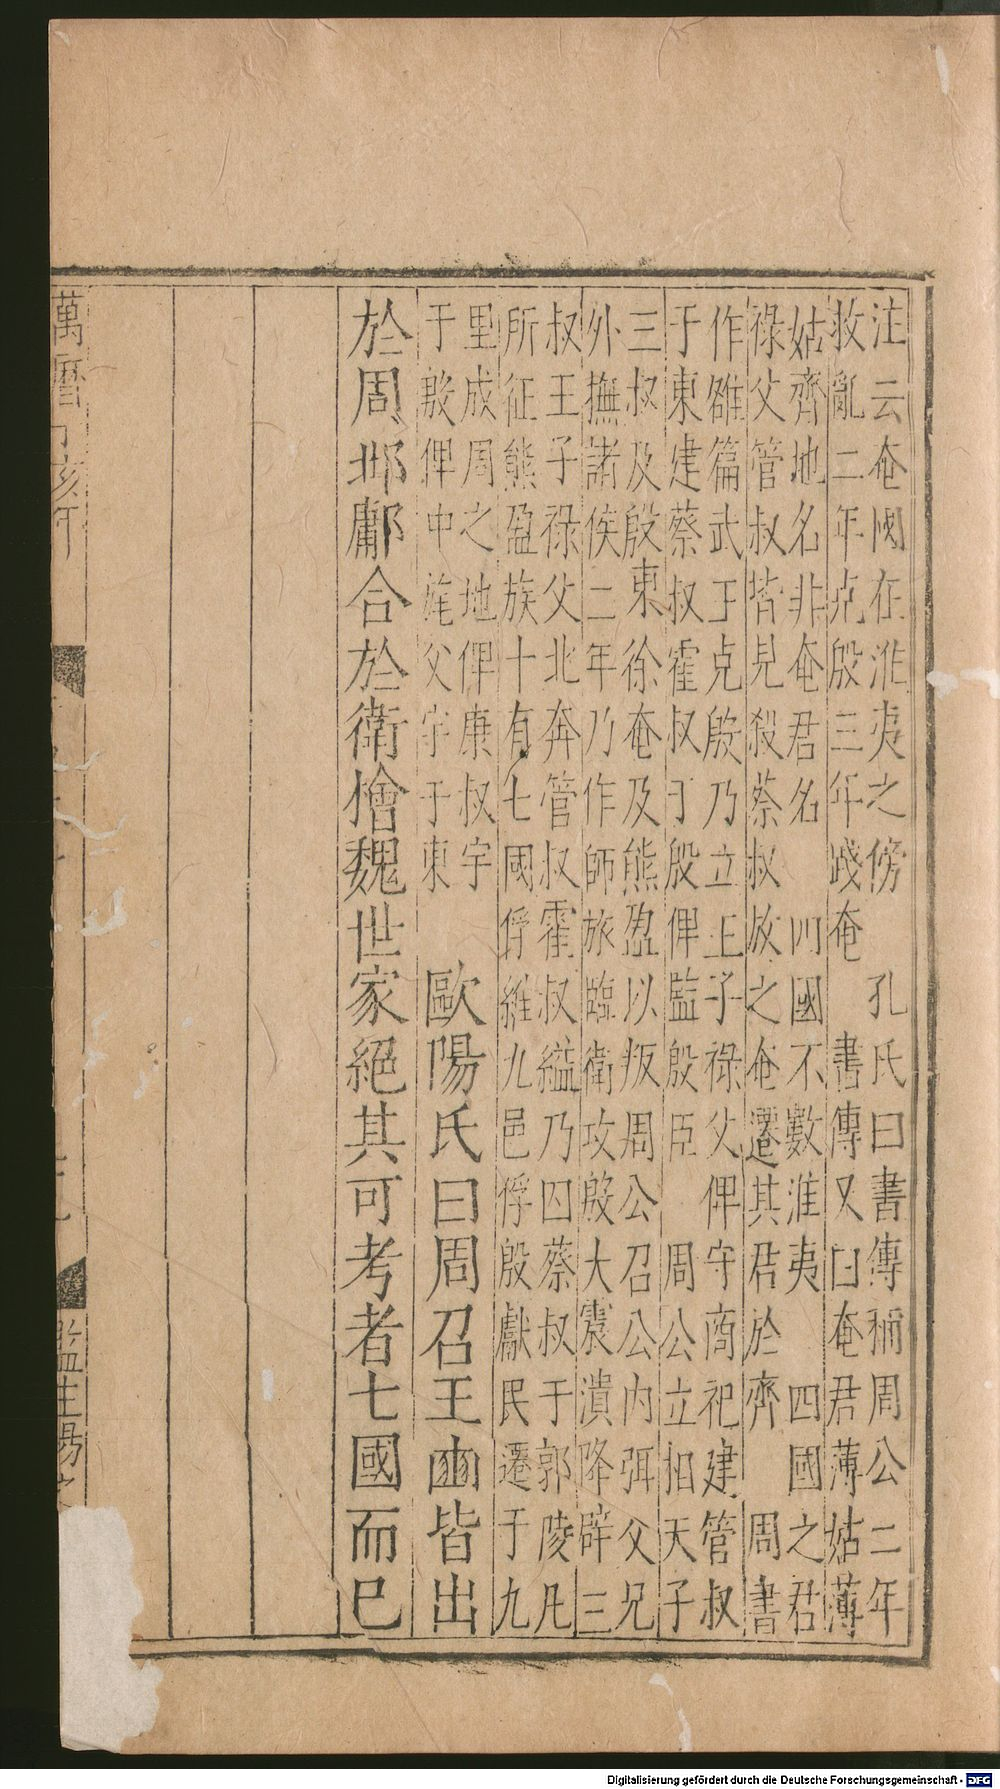 注云奄國在淮夷之傍　孔氏曰書傳稱周公二年
救亂二年克殷三年踐奄　書傳又曰奄君薄姑薄
姑齊地名非奄君名　四國不數淮夷　四國之君
祿父管叔皆見殺蔡叔放之奄遷其君於齊　周書
作雒篇武王克殷乃立王子祿父俾守商祀建管叔
于東建蔡叔霍叔于殷俾監殷臣　周公立相天子
三叔及殷東徐奄及熊盈以叛周公召公內弭父兄
外撫諸侯二年乃作師旅臨衛攻殷大震潰降辟三
叔王子祿父北奔管叔霍叔縊乃囚蔡叔于郭陵凡
所征熊盈族十有七國俘維九邑俘殷獻民遷于九
里成周之地俾康叔宇
于殷俾中旄父宇于東
歐陽氏曰周召王豳皆出
於周邶鄘合於衛檜魏世家絕其可考者七國而已
萬曆丁亥年
監生楊
Digitalisierung gefördert durch die Deutsche Forschungsgemeinschaft - DFG